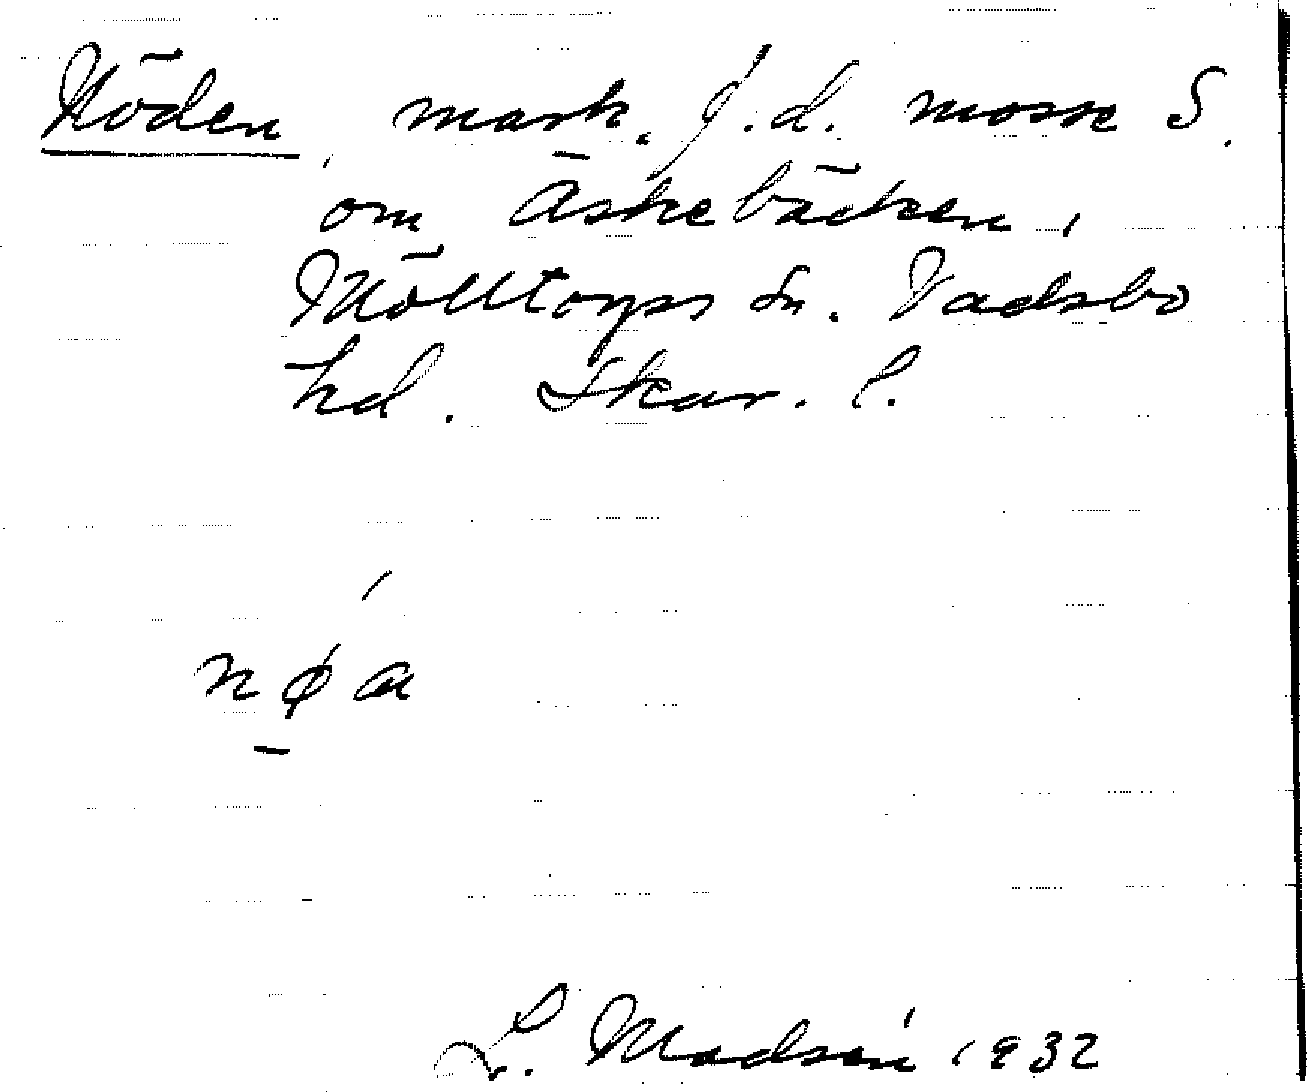 Nöden, mark. f.d. mosse S.
om Äskebäcken,
Mölltorps sn. Vadsbo
hd. Skar. l.
nøa
L. Madsén 1932